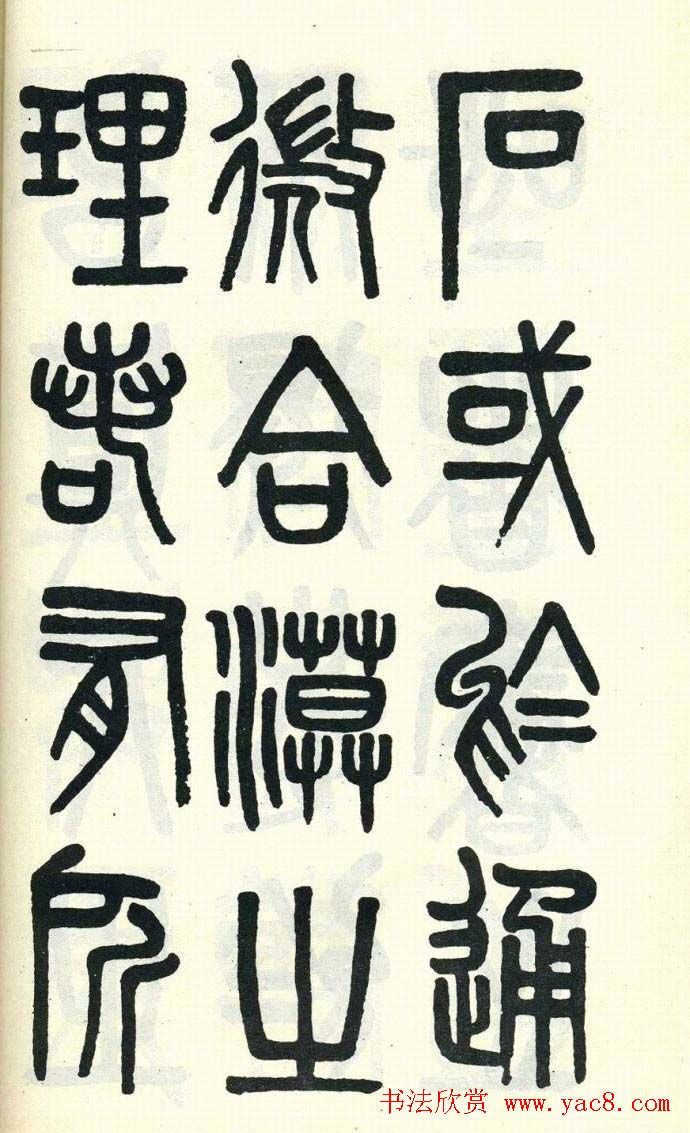 石或於通
微合漠之
理者有所
书法欣赏 www.yac8.com